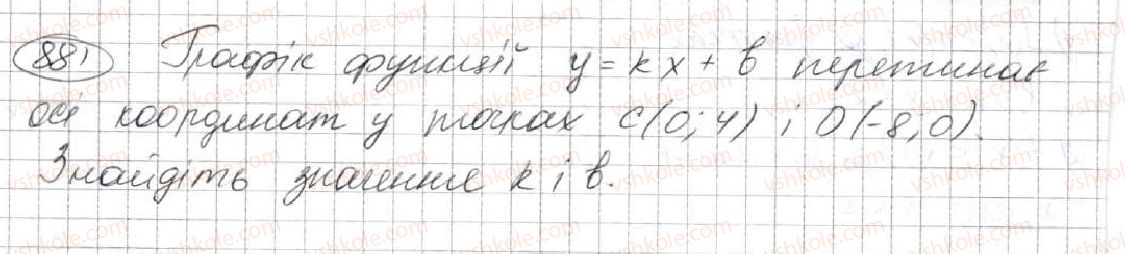 881 Графік функції y = kx + b перетинає
осі координат у точках C(0; 4) і D(-8; 0).
Знайдіть значення k і b.